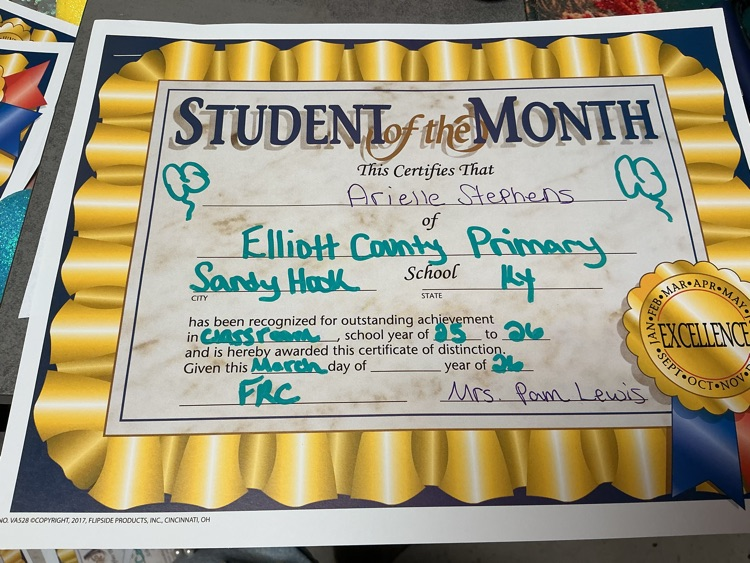 STUDENT of the MONTH
This Certifies That
Arielle Stephens
of
Elliott County Primary
Sandy Hook School Ky
CITY STATE
has been recognized for outstanding achievement
in classroom, school year of 25 to 26
and is hereby awarded this certificate of distinction.
Given this March day of ________ year of 26
FRC Mrs. Pam Lewis
JAN•FEB•MAR•APR•MAY
EXCELLENCE
SEPT•OCT•NOV
NO. VA528 ©COPYRIGHT, 2017, FLIPSIDE PRODUCTS, INC., CINCINNATI, OH